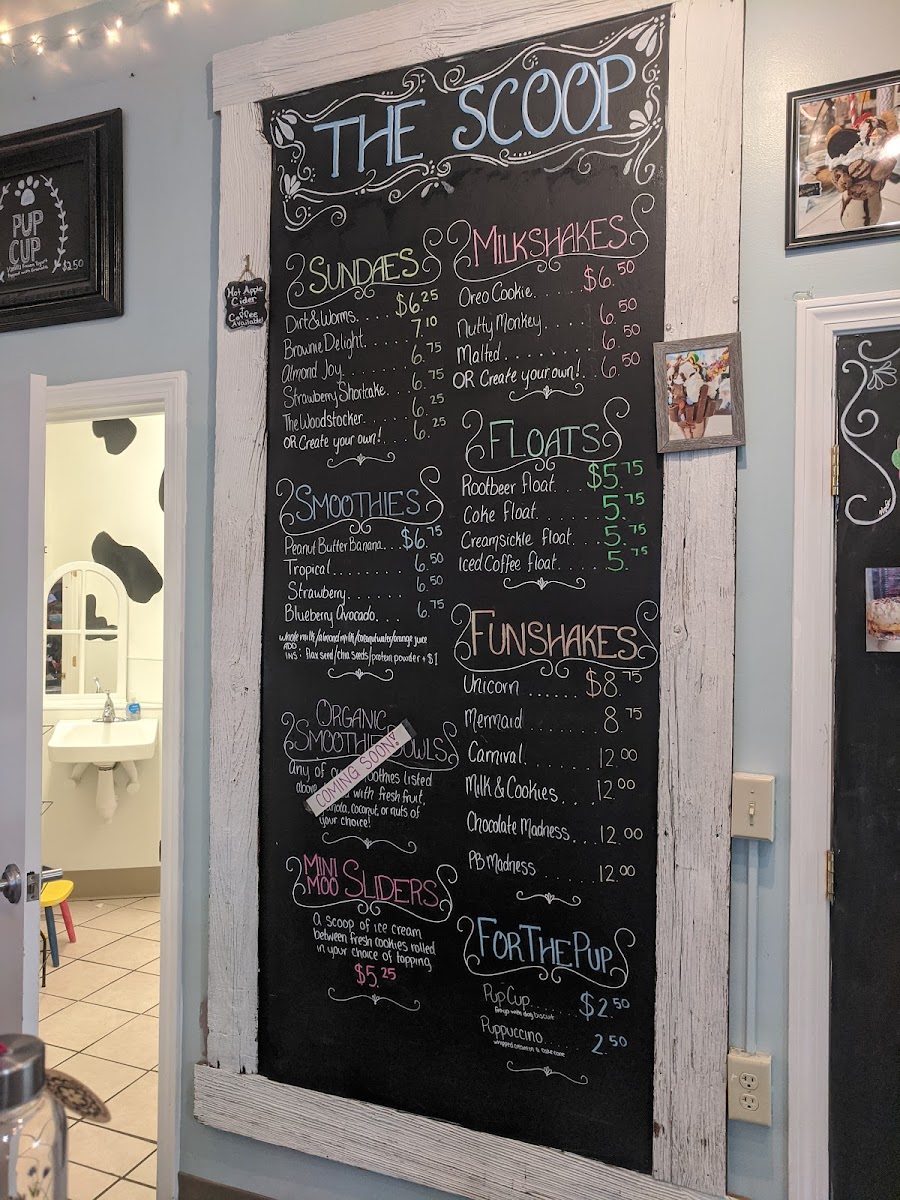 THE SCOOP
PUP
CUP
$2.50
Hot Apple
Cider
+
Coffee
Available!
SUNDAES
Dirt & Worms. $6.25
Brownie Delight. 7.10
Almond Joy. 6.75
Strawberry Shortcake. 6.75
The Woodstocker. 6.25
OR Create your own! 6.25
SMOOTHIES
Peanut Butter Banana... $6.75
Tropical......... 6.50
Strawberry....... 6.50
Blueberry Avocado... 6.75
whole milk/almond milk/coconut water/orange juice
ADD
INS: flax seed/chia seeds/protein powder + $1
ORGANIC
SMOOTHIE BOWLS
COMING SOON!
any of smoothies listed
above with fresh fruit,
coconut, or nuts of
your choice!
MINI
MOO SLIDERS
A scoop of ice cream
between fresh cookies rolled
in your choice of topping
$5.25
MILKSHAKES
Oreo Cookie...... $6.50
Nutty Monkey..... 6.50
Malted......... 6.50
OR Create your own!.. 6.50
FLOATS
Rootbeer float... $5.75
Coke float....... 5.75
Creamsickle float.... 5.75
Iced Coffee float.... 5.75
FUNSHAKES
Unicorn ...... $8.75
Mermaid ....... 8.75
Carnival....... 12.00
Milk & Cookies... 12.00
Chocolate Madness... 12.00
PB Madness ...... 12.00
FOR THE PUP
Pup Cup...... $2.50
with dog biscuit
Puppuccino...... 2.50